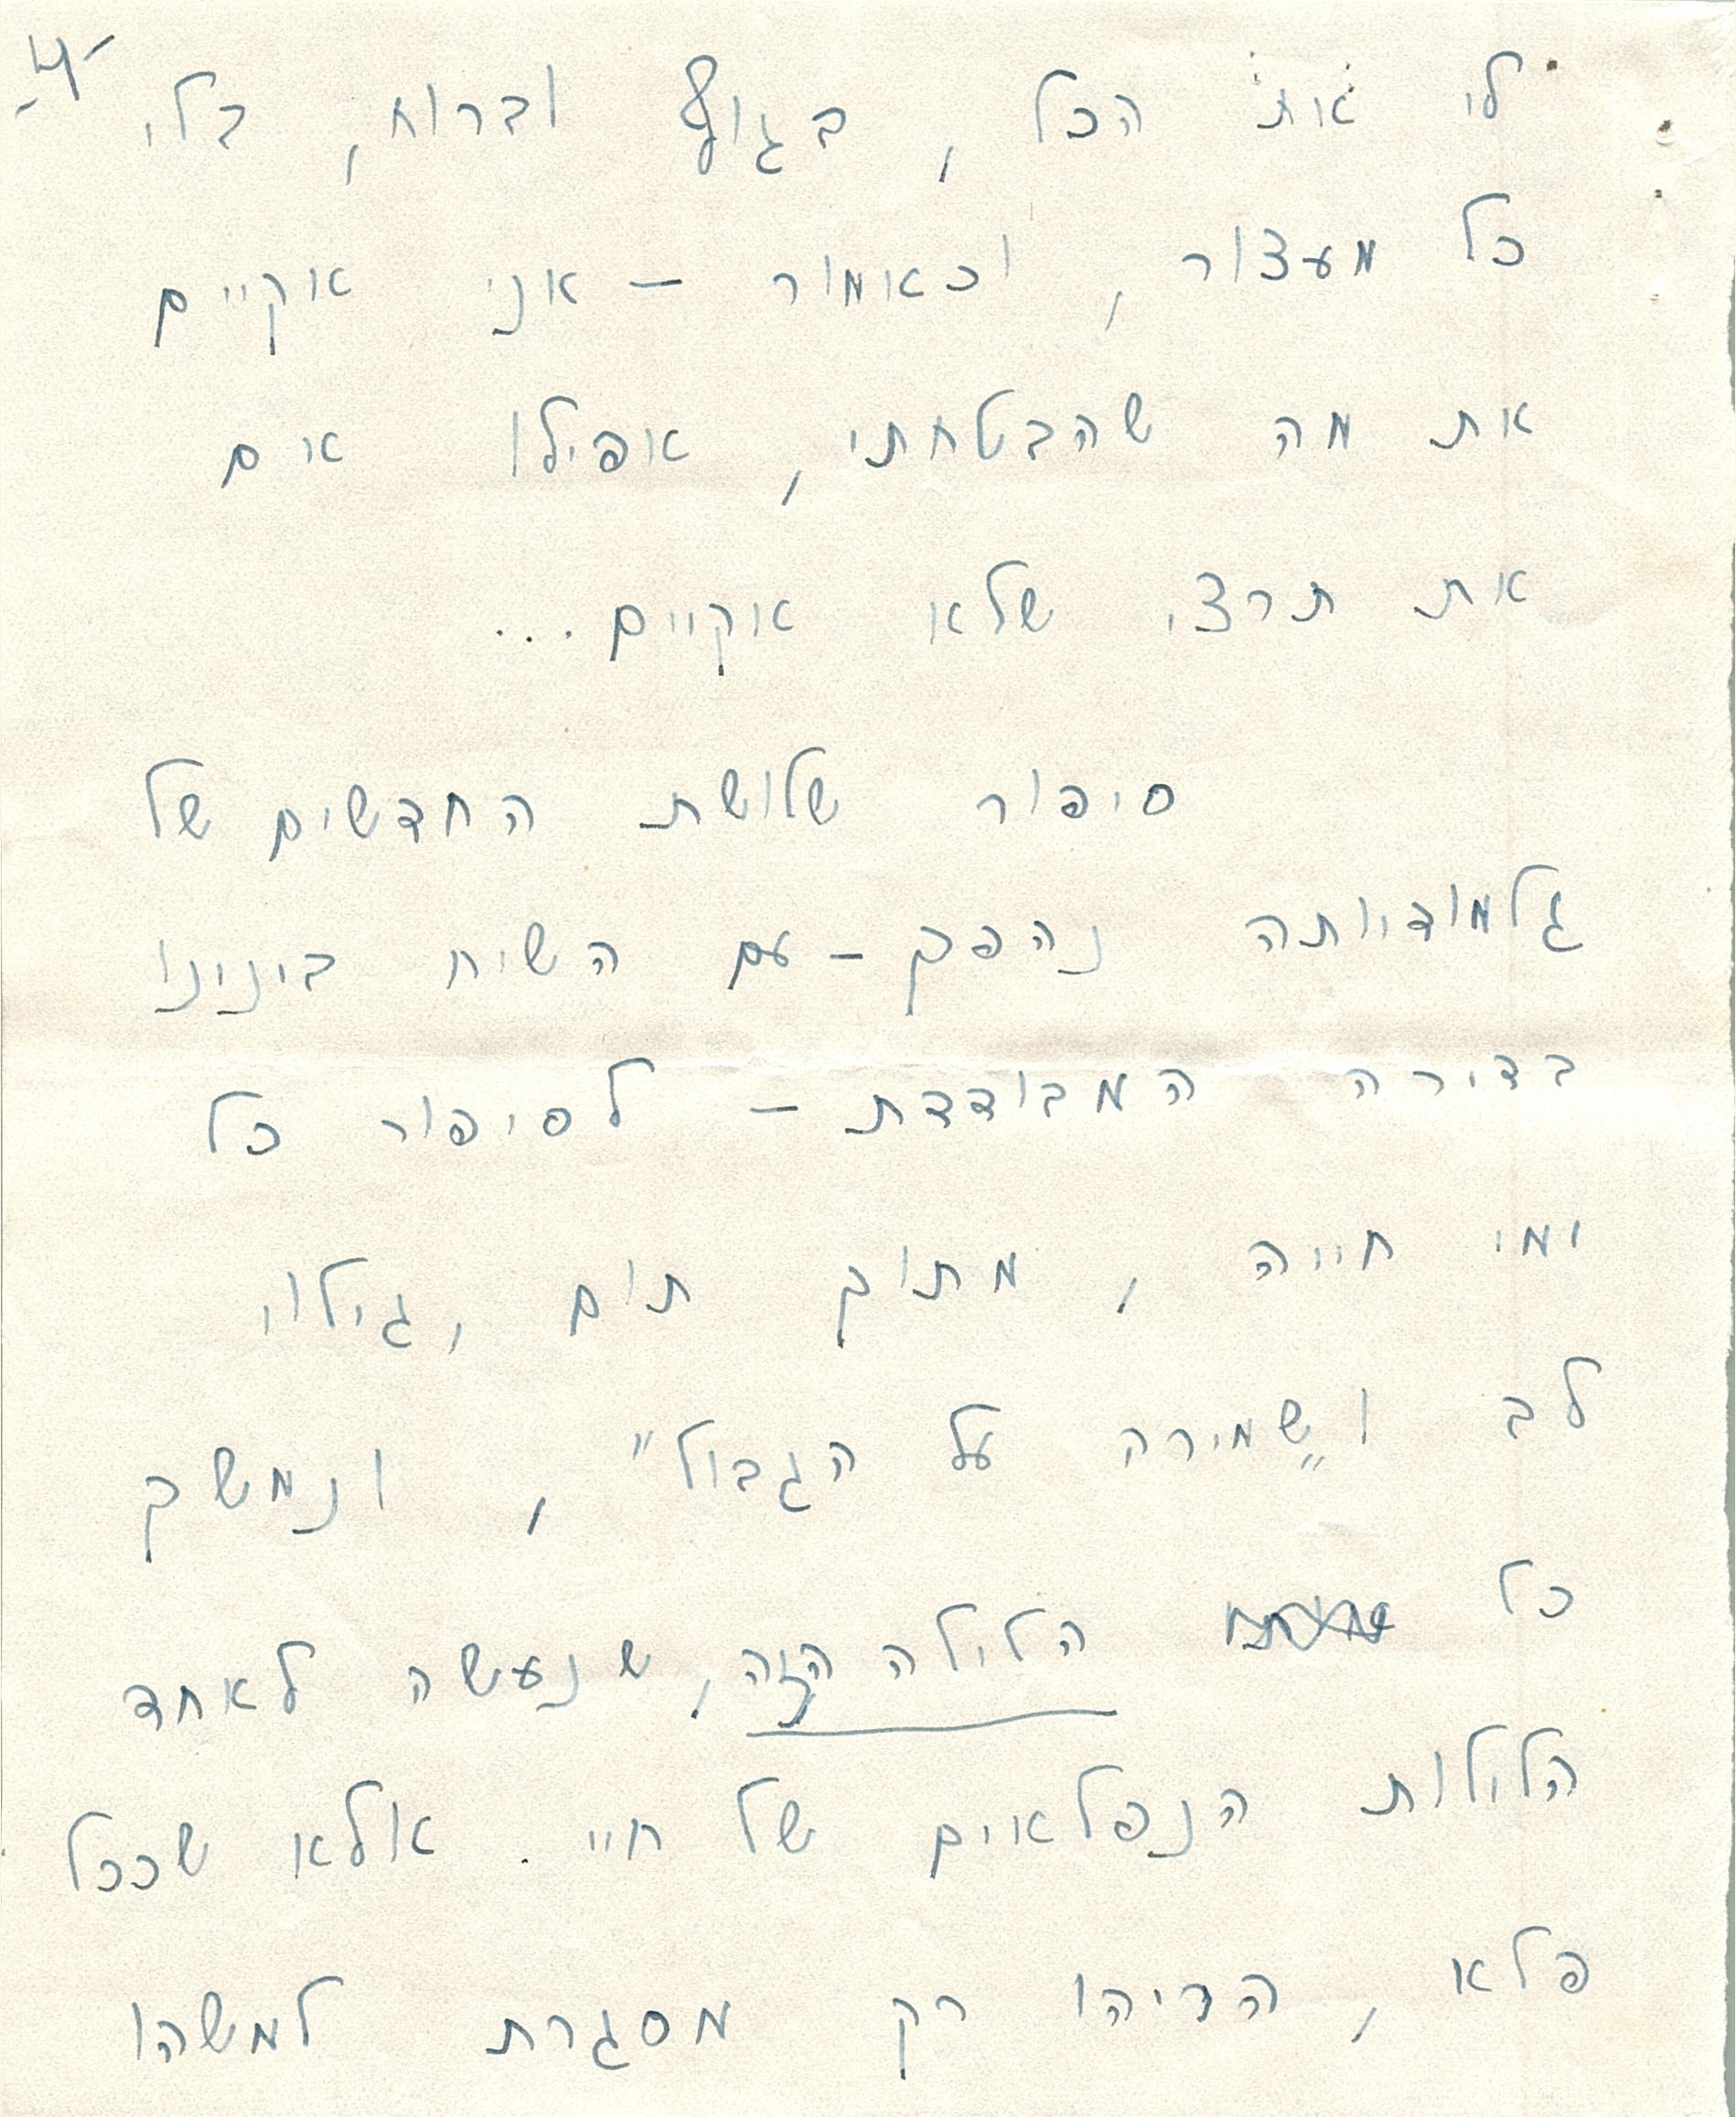 לי את הכל, בגוף וברוח, בלי
כל מעצור, וכאמור – אני אקיים
את מה שהבטחתי, אפילו אם
את תרצי שלא אקיים...
סיפור שלושת החדשים של
גלמודיותה נהפך – עם השיח בינינו
בדירה המבודדת – לסיפור כל
ימי חייה, מתוך תום, גילוי
לב ו„שמירה על הגבול", ונמשך
כל הלילה הזה, שנעשה לאחד
הלילות הנפלאים של חיי. אלא שככל
פלא, הריהו רק מסגרת למשהו